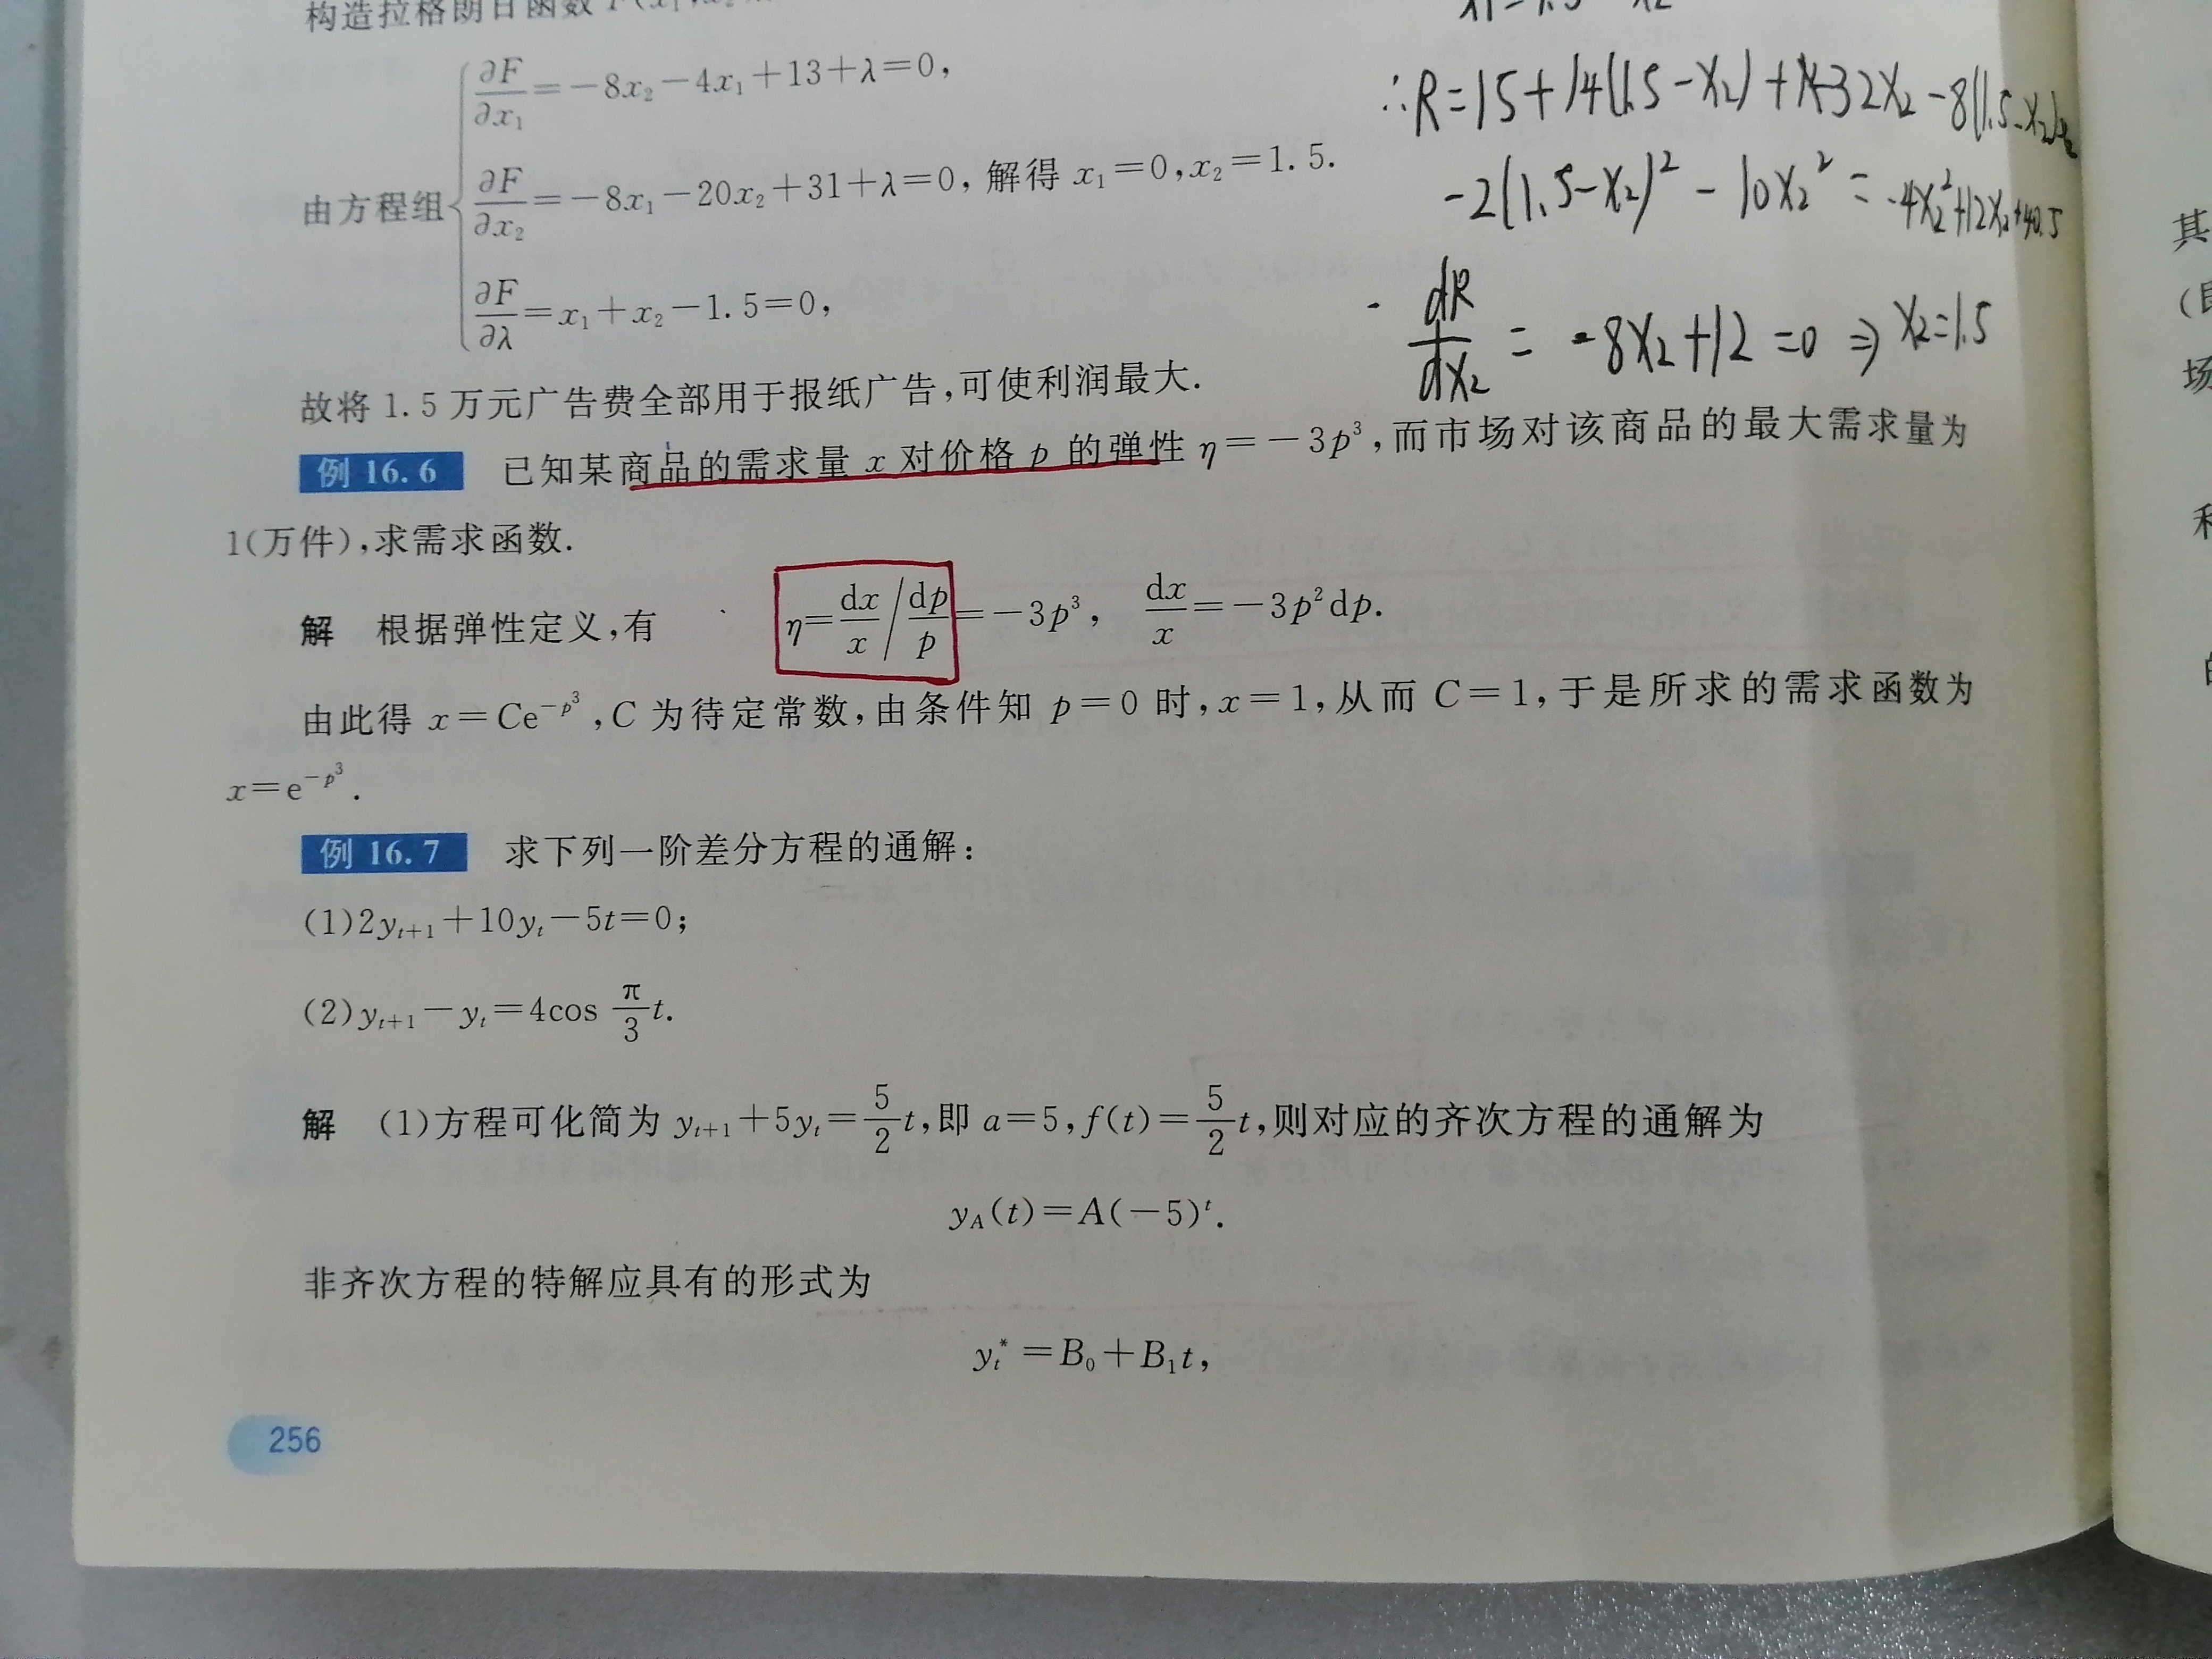 构造拉格朗日函数
∂F/∂x₁=-8x₂-4x₁+13+λ=0,
由方程组 ∂F/∂x₂=-8x₁-20x₂+31+λ=0, 解得 x₁=0,x₂=1.5.
∂F/∂λ=x₁+x₂-1.5=0,
∴R=15+14(1.5-x₂)+32x₂-8(1.5-x₂)x₂
-2(1.5-x₂)²-10x₂²=-4x₂²+12x₂+40.5
dR/dx₂=-8x₂+12=0⇒x₂=1.5
故将1.5万元广告费全部用于报纸广告,可使利润最大.
例 16.6 已知某商品的需求量 x 对价格 p 的弹性 η=-3p³,而市场对该商品的最大需求量为
1(万件),求需求函数.
解 根据弹性定义,有 η=dx/x/dp/p=-3p³, dx/x=-3p²dp.
由此得 x=Ce^{-p³},C 为待定常数,由条件知 p=0 时,x=1,从而 C=1,于是所求的需求函数为
x=e^{-p³}.
例 16.7 求下列一阶差分方程的通解:
(1)2yₜ₊₁+10yₜ-5t=0;
(2)yₜ₊₁-yₜ=4cos π/3 t.
解 (1)方程可化简为 yₜ₊₁+5yₜ=5/2 t,即 a=5,f(t)=5/2 t,则对应的齐次方程的通解为
y_A(t)=A(-5)ᵗ.
非齐次方程的特解应具有的形式为
yₜ*=B₀+B₁t,
256
其
场